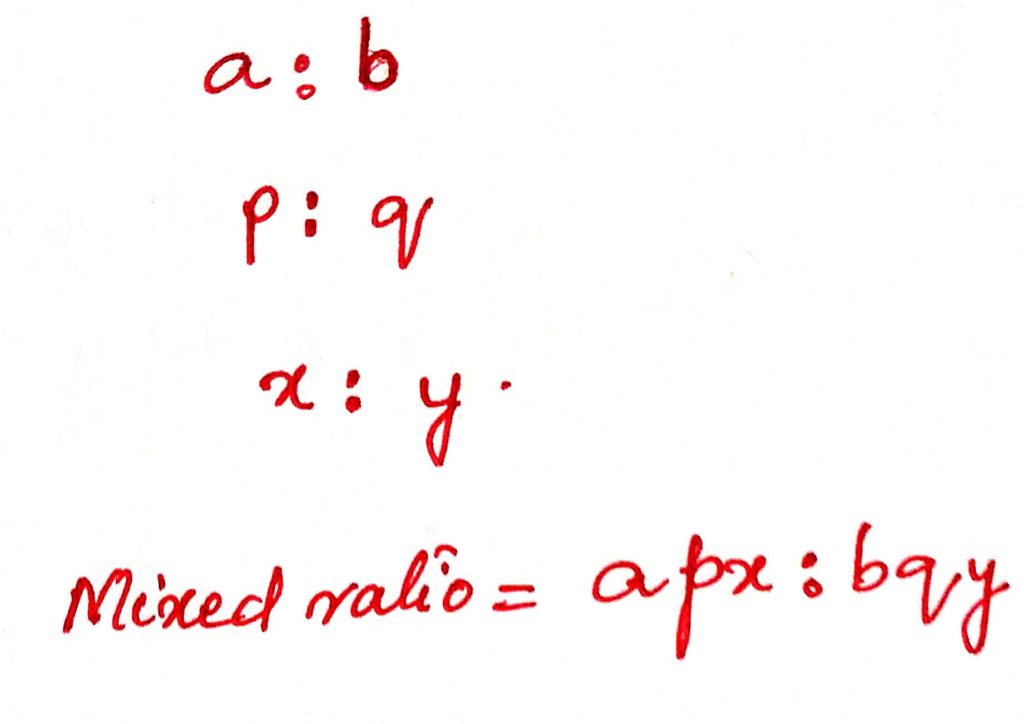 a : b
p : q
x : y .
Mixed ratio = apx : bqy